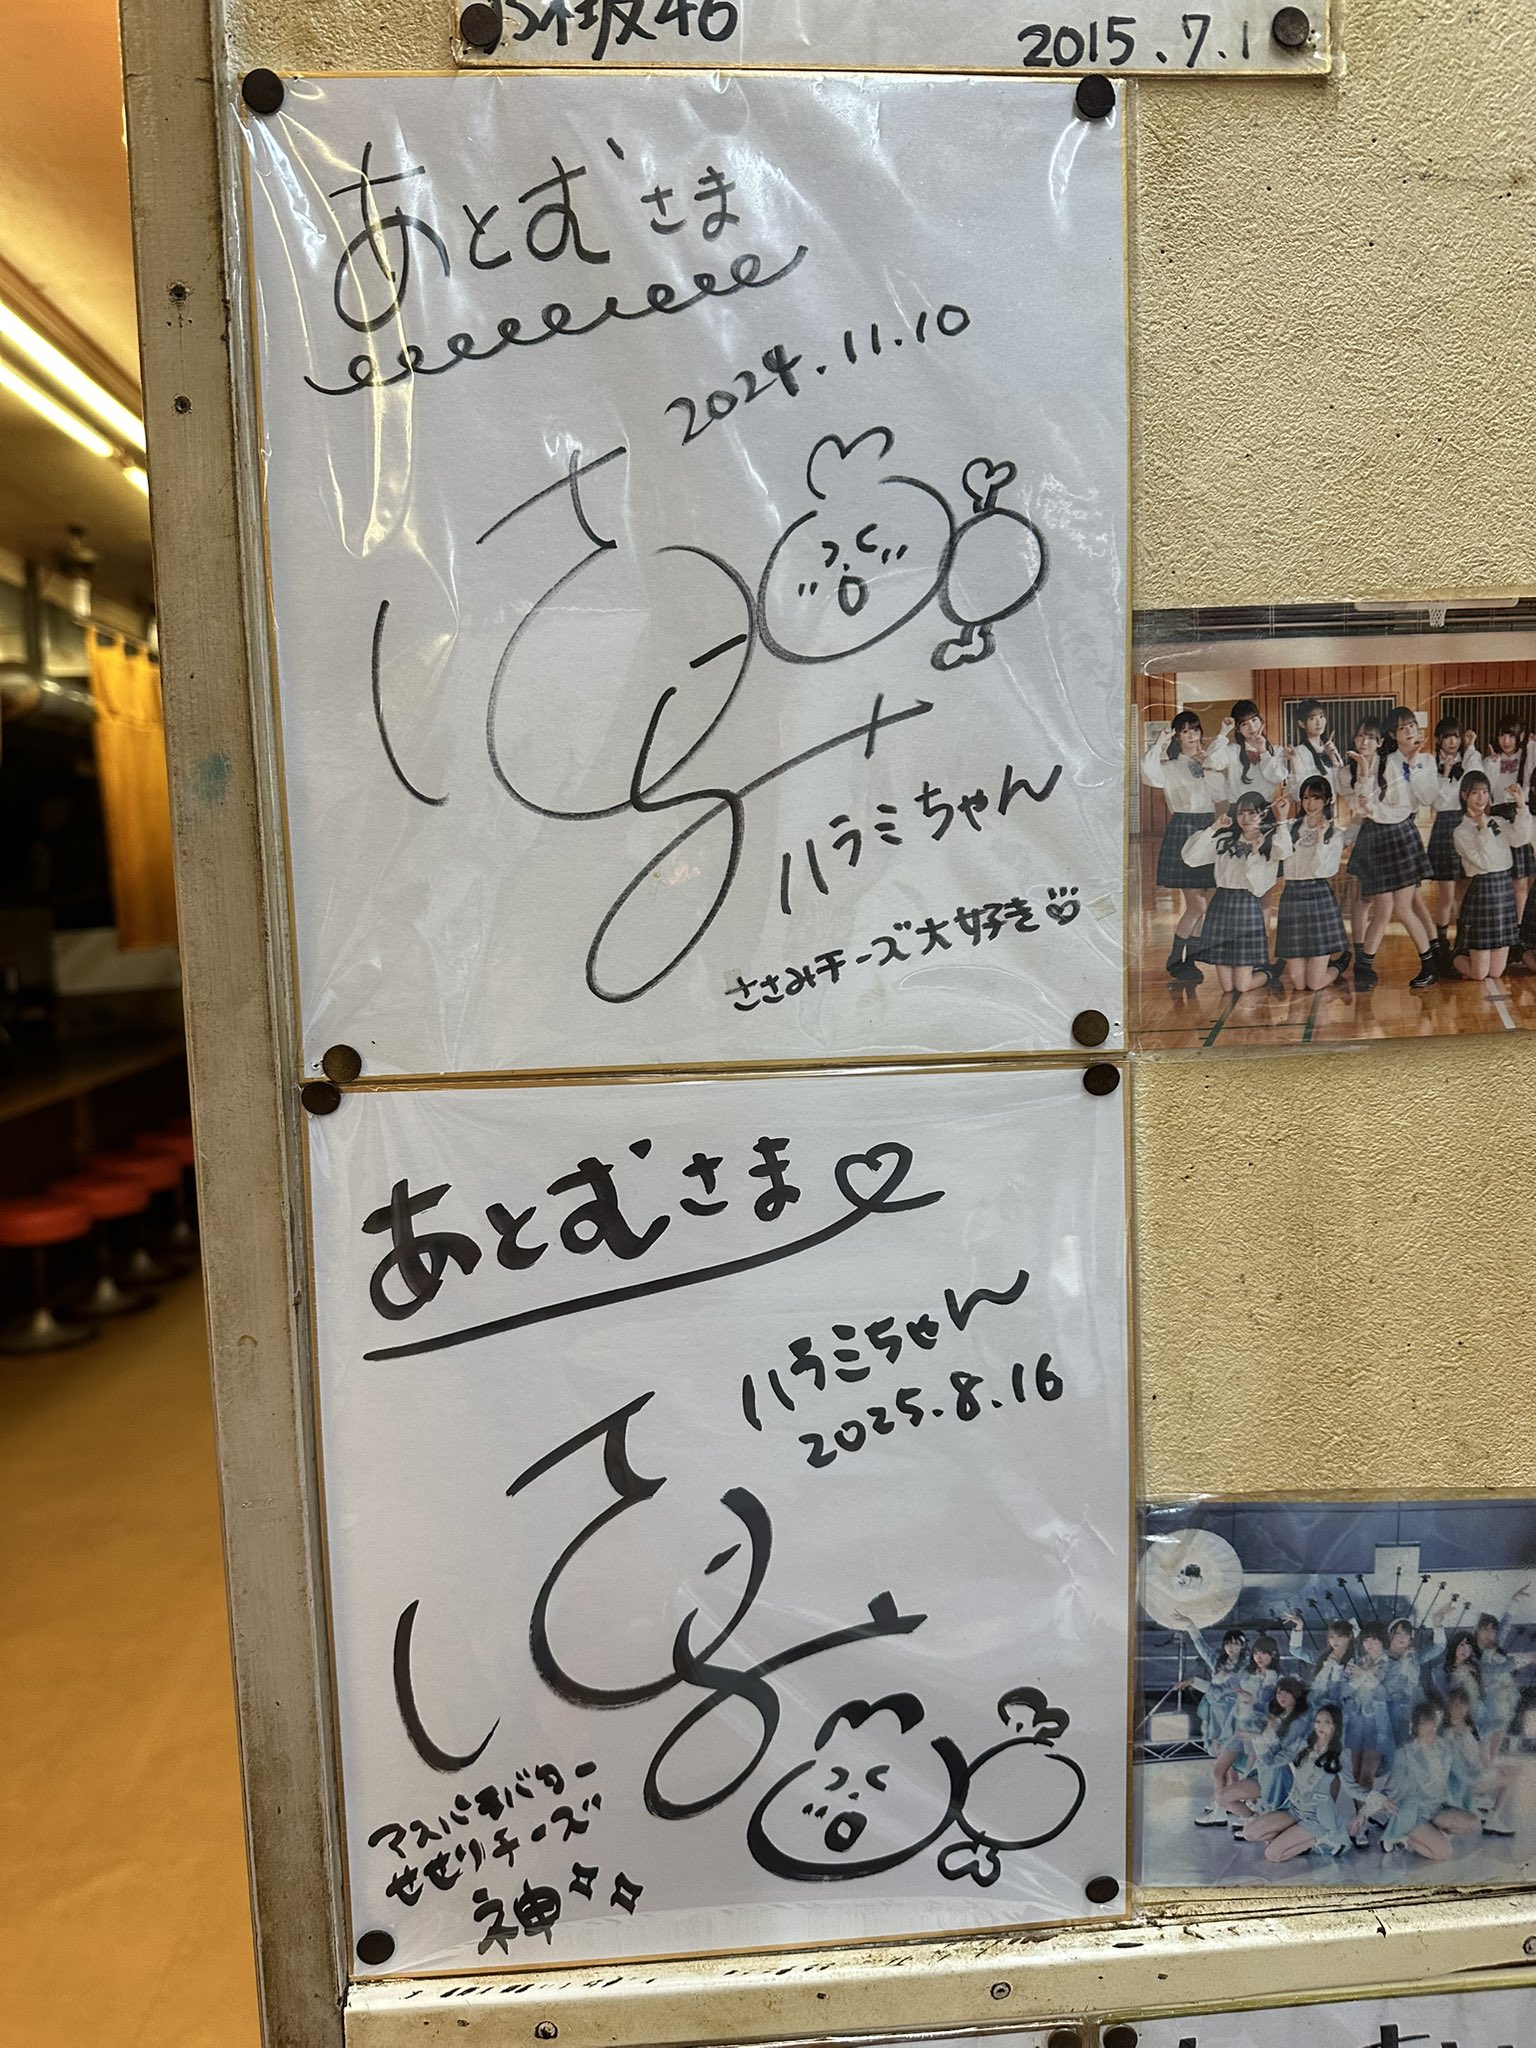 乃木坂46
2015.7.1
あとむさま
2024.11.10
ハラミちゃん
ささみチーズ大好き♡
あとむさま♡
ハラミちゃん
2025.8.16
アスパラバター
せせりチーズ
神